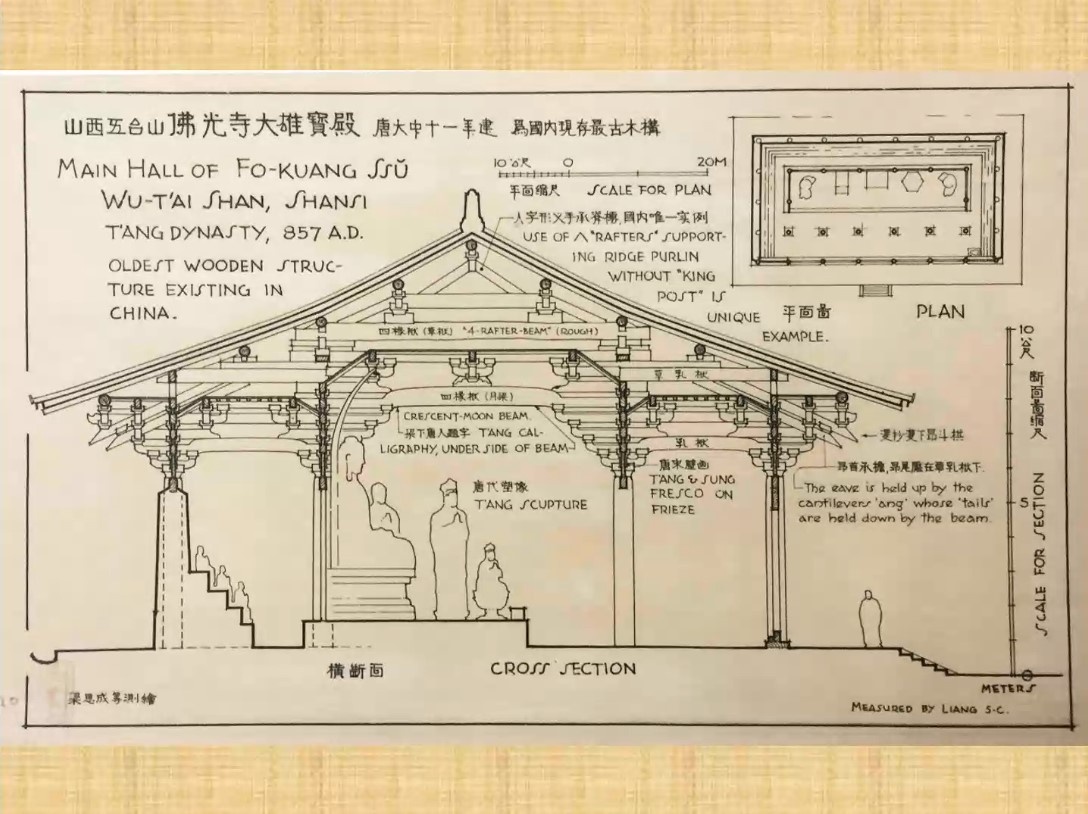 山西五台山佛光寺大雄寳殿 唐大中十一年建 爲國内現存最古木構
MAIN HALL OF FO-KUANG SSŬ
WU-T'AI SHAN, SHANSI
T'ANG DYNASTY, 857 A.D.
OLDEST WOODEN STRUC-
TURE EXISTING IN
CHINA.
10 公尺 0 20M
平面縮尺 SCALE FOR PLAN
人字形叉手承脊槫,國内唯一实例
USE OF 八 "RAFTERS" SUPPORT-
ING RIDGE PURLIN
WITHOUT "KING
POST" IS
UNIQUE
EXAMPLE.
平面圖 PLAN
四椽栿 (草栿) "4-RAFTER-BEAM" (ROUGH)
草乳栿
四椽栿 (月梁)
CRESCENT-MOON BEAM
梁下唐人題字 T'ANG CAL-
LIGRAPHY, UNDER SIDE OF BEAM
乳栿
唐代塑像
T'ANG SCUPTURE
唐宋壁画
T'ANG & SUNG
FRESCO ON
FRIEZE
双抄双下昂斗栱
昂首承檐,昂尾壓在草乳栿下.
The eave is held up by the
cantilevers 'ang' whose 'tails'
are held down by the beam.
10公尺
5
0
断面圖縮尺
SCALE FOR SECTION
METERS
橫斷面 CROSS SECTION
梁思成等測繪
MEASURED BY LIANG S-C.